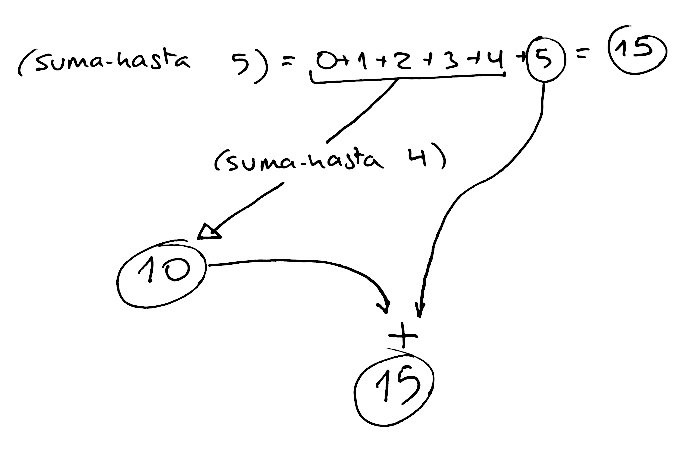 (suma-hasta 5) = 0+1+2+3+4+5 = 15
(suma-hasta 4)
10
+
15